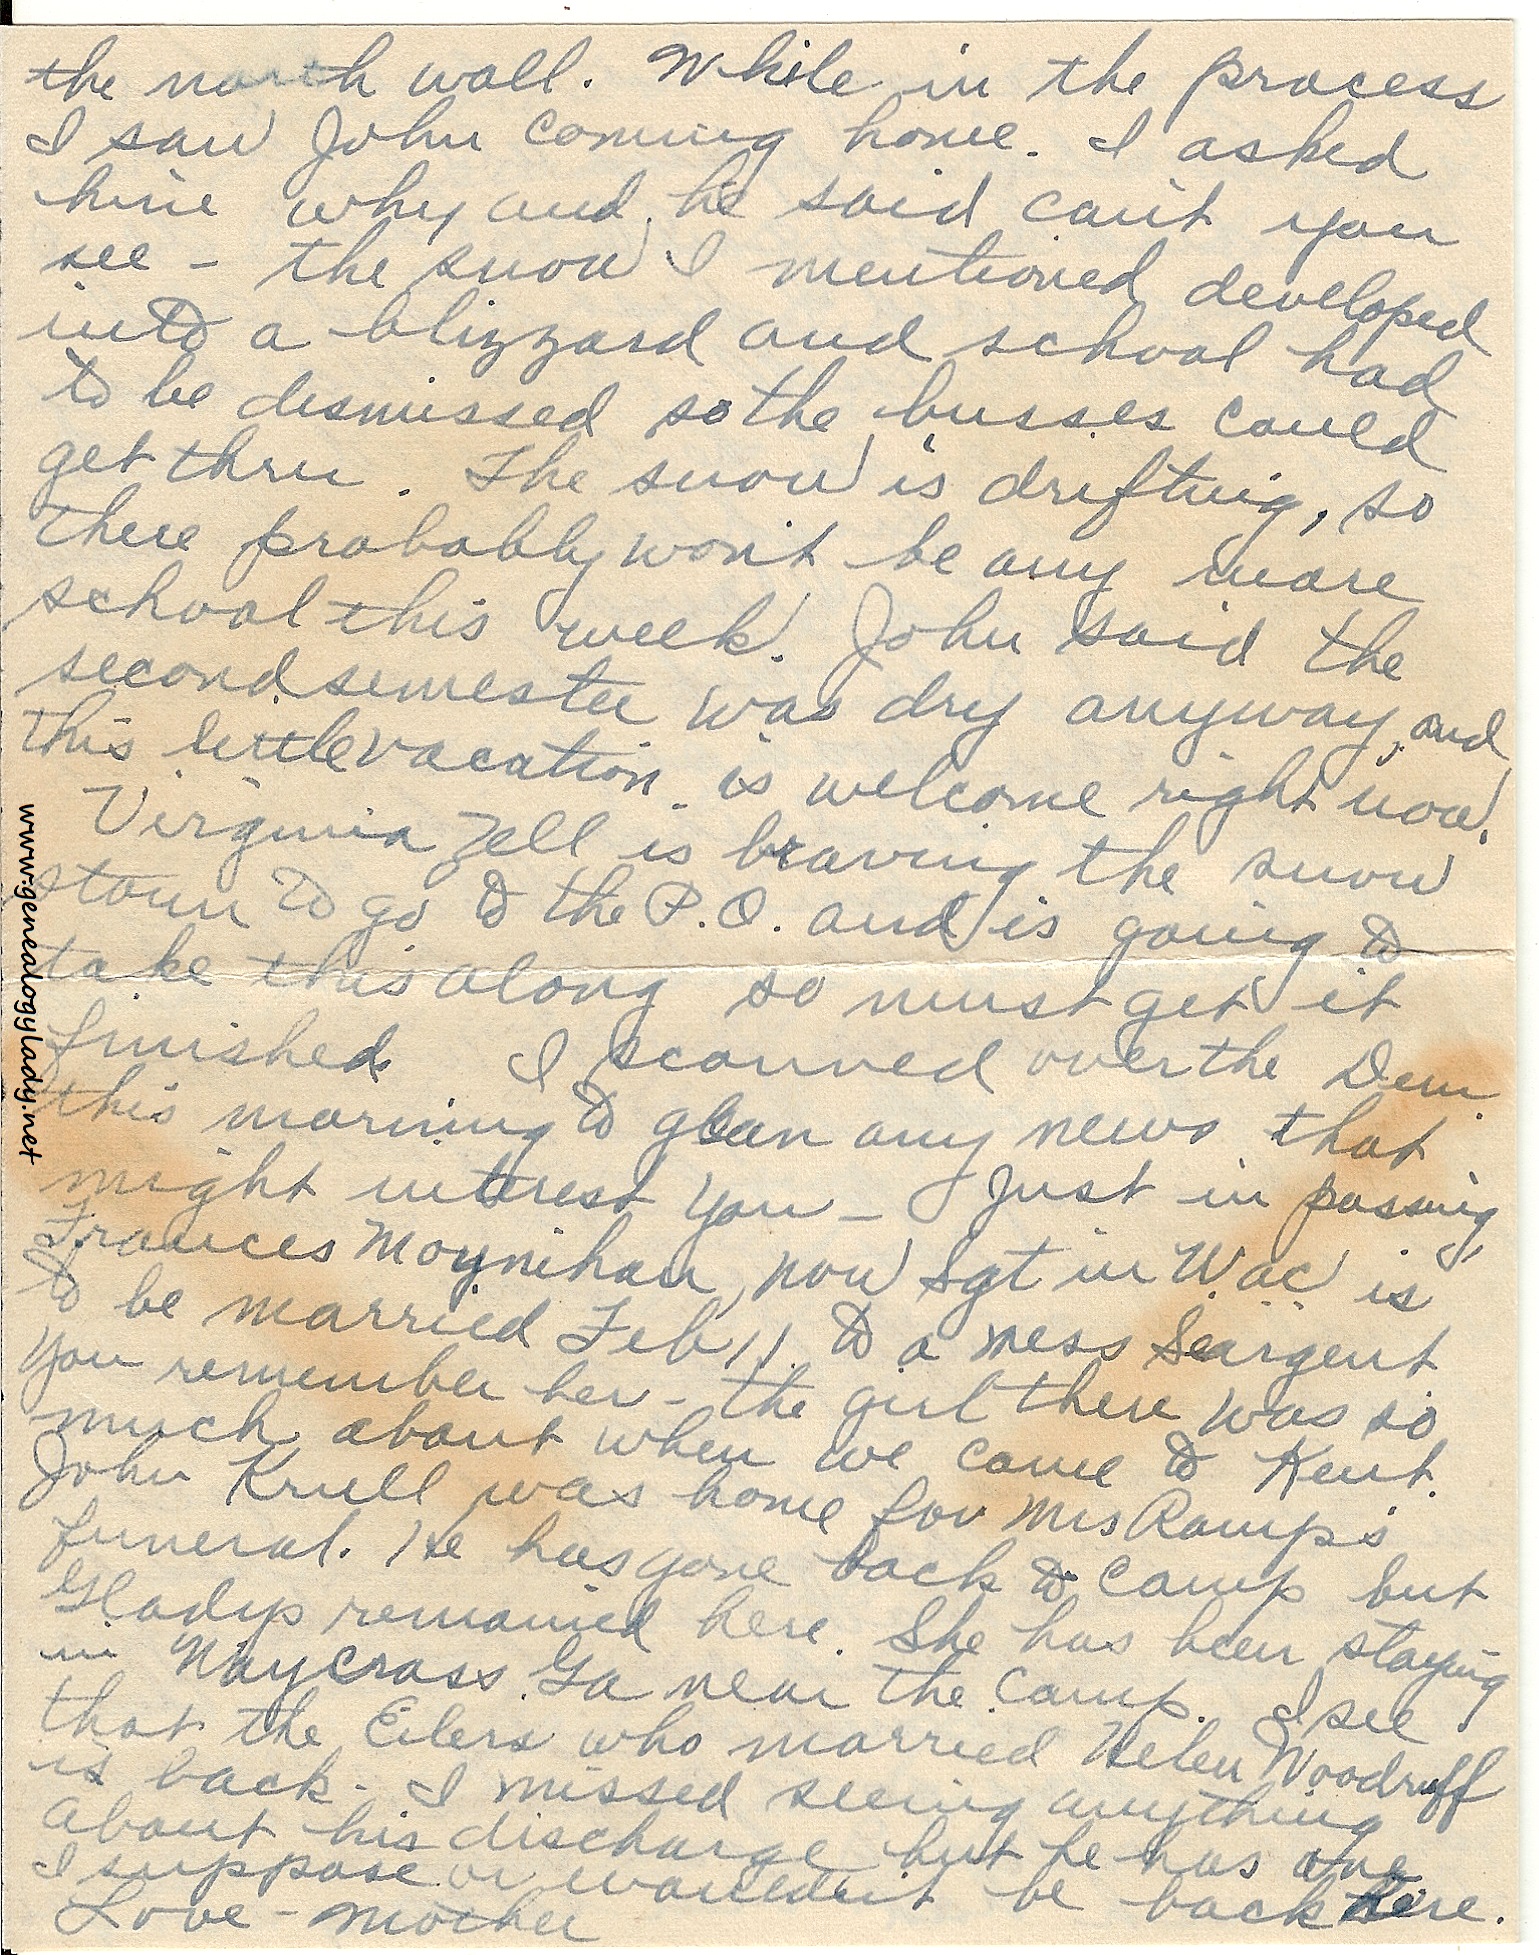 the north wall. While in the process
I saw John coming home. I asked
him why and he said can't you
see - the snow I mentioned developed
into a blizzard and school had
to be dismissed so the busses could
get thru. The snow is drifting, so
there probably won't be any more
school this week. John said the
second semester was dry anyway, and
this little vacation is welcome right now.
Virginia Zell is braving the snow
storm to go to the P.O. and is going to
take this along so must get it
finished. I scanned over the Dem.
this morning to glean any news that
might interest you - Just in passing,
Frances Moynihan, now Sgt in Wac is
to be married Feb 11 to a mess Seargent
You remember her - the girl there was so
much about when we came to Kent.
John Krull was home for Mrs Ramp's
funeral. He has gone back to camp but
Gladys remained here. She has been staying
in Waycross Ga near the camp. I see
that the Eilers who married Helen Woodruff
is back - I missed seeing anything
about his discharge but he has one
I suppose or wouldn't be back here.
Love - Mother
www.genealogylady.net